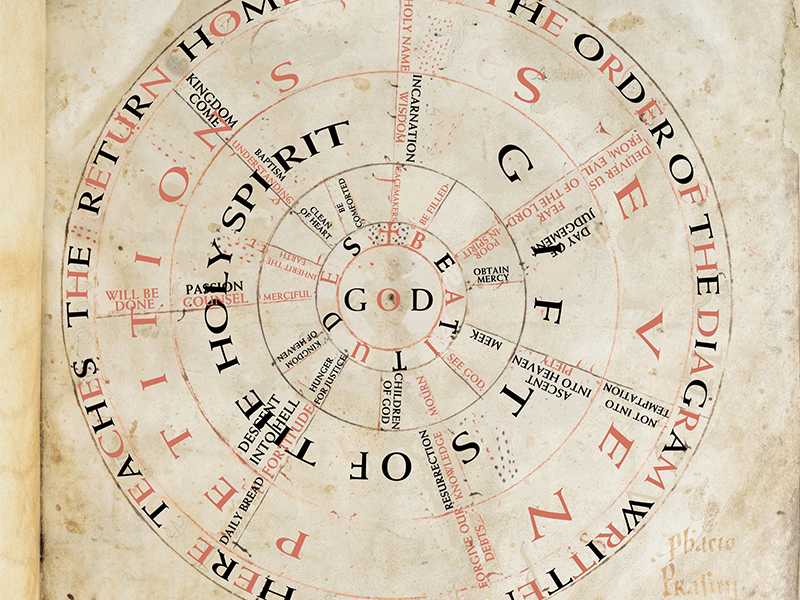 THE ORDER OF THE DIAGRAM WRITTEN HERE TEACHES THE RETURN HOME
SEVEN PETITIONS
GIFTS OF THE HOLY SPIRIT
BEATITUDES
GOD
HOLY NAME
INCARNATION
WISDOM
PEACEMAKERS
BE FILLED
DELIVER US
FROM EVIL
FEAR
OF THE LORD
DAY OF
JUDGEMENT
POOR
IN SPIRIT
OBTAIN
MERCY
NOT INTO
TEMPTATION
PIETY
ASCENT
INTO HEAVEN
MEEK
SEE GOD
FORGIVE OUR
DEBTS
KNOWLEDGE
RESURRECTION
MOURN
CHILDREN
OF GOD
DAILY BREAD
FORTITUDE
DESCENT
INTO HELL
HUNGER
FOR JUSTICE
KINGDOM
OF HEAVEN
WILL BE
DONE
PASSION
COUNSEL
MERCIFUL
INHERIT THE
EARTH
KINGDOM
COME
BAPTISM
UNDERSTANDING
CLEAN
OF HEART
BE
COMFORTED